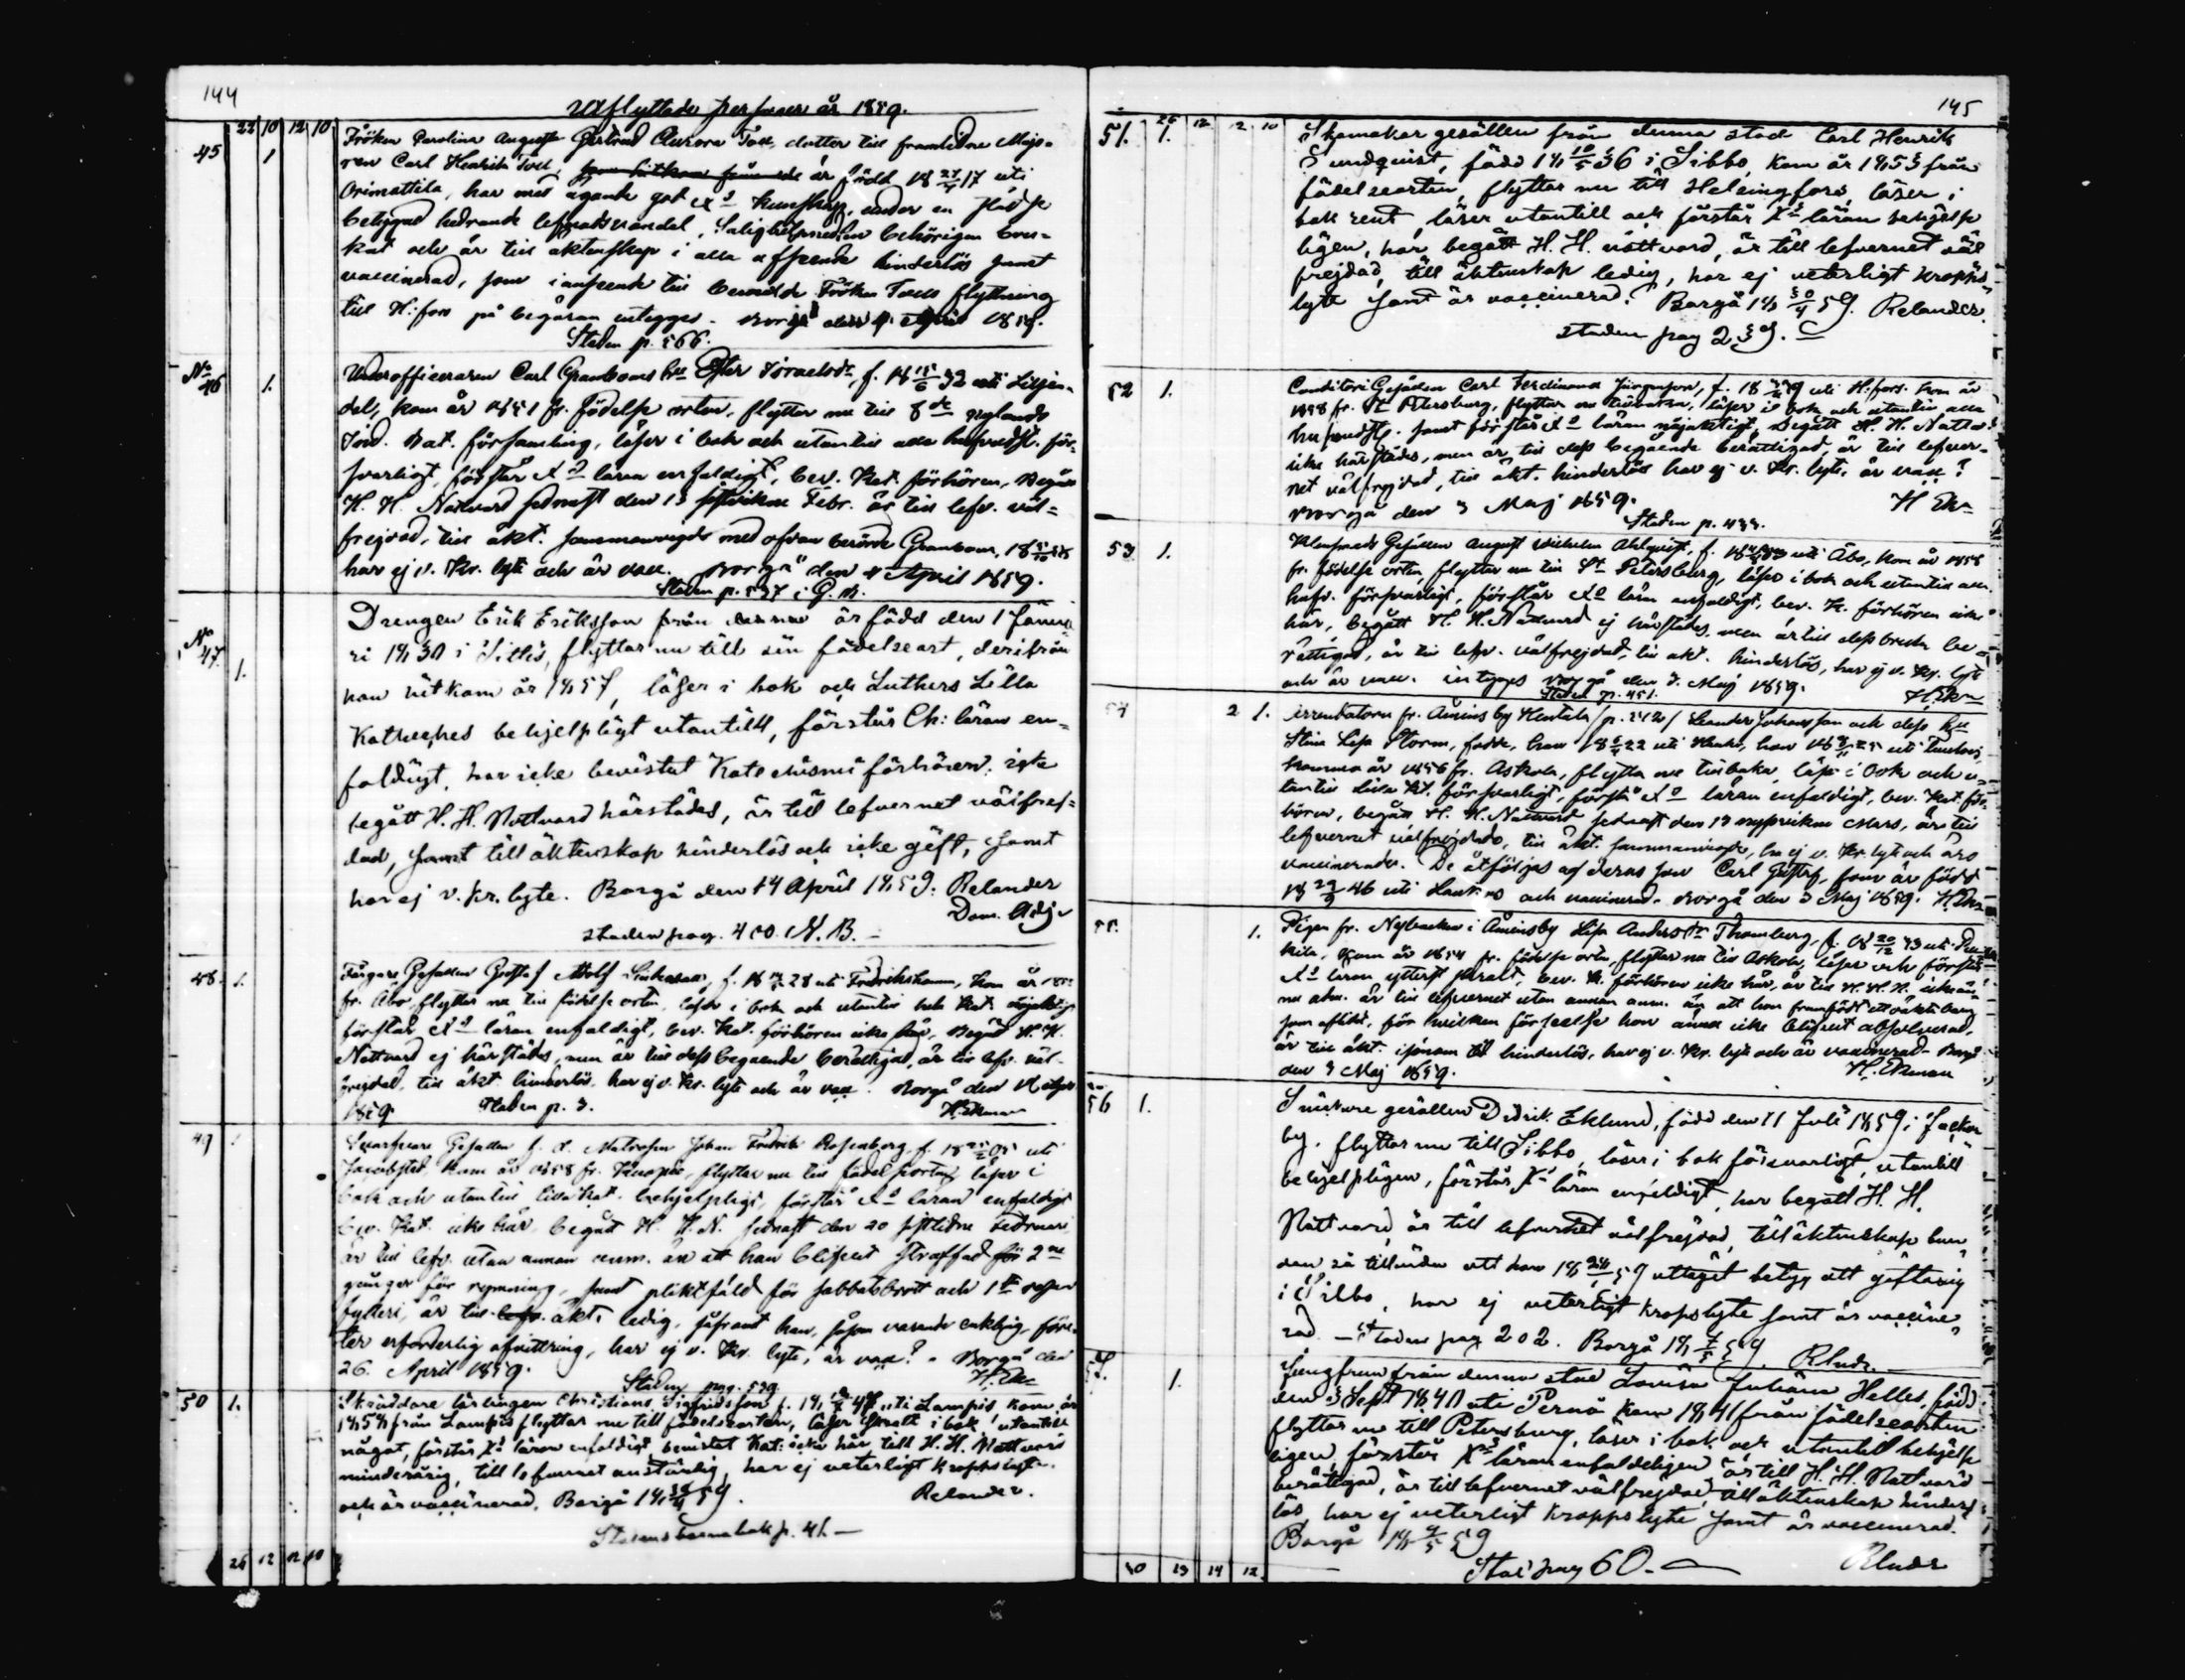 144
Utflyttade personer år 1859.
22 10 12 10
45 1
Fröken Carolina Augusta Gertrud Aurora Toll, dotter till framlidne Majo-
ren Carl Hendrik Toll, är född 18 27/5 17 uti
Orimattila, har med ägande god Xs kunskap, under en
betygad hedrande lefnadsvandel, Salighetsmedlen behörigen bru-
kat och är till äktenskap i alla afseende hinderlös samt
vaccinerad, som i anseende till bemälde Fröken Tolls flyttning
till H:fors på begäran intygges. Borgå den 4 April 1859.
Staden p. 566.
No 46 1.
Underofficeraren Carl Granboms hu Ester Israelsdr, f. 18 15/6 32 uti Liljen-
dal, kom år 1851 fr. födelse orten, flyttar nu till 8de
Ind. Bat. församling, läser i bok och utantill alla hufvudst. för-
svarligt, förstår Xs lära enfaldigt, bev. Kat. förhören, Begått
H. H. Nattvard sednast den 13 sistvikne Febr. är till lefv. väl=
frejdad, till äkt. sammanvigd med ofvan berörde Granbom,
har ej v. Kr. lyte och är vacc. Borgå den 4 April 1859.
Staden p. 537
No 47. 1.
Drengen Erik Eriksson från är född den 1 Janua-
ri 1830 i Sittis, flyttar nu till sin födelseort, derifrån
han hitkom år 1857, läser i bok och Luthers Lilla
Katheches behjelpligt utantill, förstår Ch: läran en-
faldigt, har icke bevistat Katechismi förhören, icke
begått H. H. Nattvard härstädes, är till lefvernet välfrej-
dad, samt till äktenskap hinderlös och icke gift, samt
har ej v. kr. lyte. Borgå den 14 April 1859. Relander
Dom. Adj.
staden pag. 400. N. B.
48. 1.
Färgare Gesällen Gustaf Adolf f. 28 uti Fredrikshamn, kom år
fr. Åbo flyttar nu till födelse orten, läser i bok och utantill hela Kat. nöjaktigt
förstår Xs läran enfaldigt, bev. Kat. förhören icke här, Begått H. H.
Nattvard ej härstädes, men är till dess begående berättigad, är till lefv. väl-
frejdad, till äkt. hinderlös, har ej v. Kr. lyte och är vacc. Borgå den
1859. Staden p. 3. H. Ekman
49 1
Svarfvare Gesällen f. d. Matrosen Johan Fredrik Rosenborg, f. uti
Jacobstad, kom år 1858 fr. flyttar nu till födelseorten, läser i
bok och utantill lilla Kat. behjelpligt, förstår Xs läran enfaldigt
bev. Kat. icke här, begått H. H. N. sednast den 20 sistledne Februari
är till lefv. utan annan anm. än att han blifvit straffad för 2ne
gånger för rymning, samt pliktfäld för sabbatsbrott och 1sta resan
fylleri, är till äkt. ledig, såframt han, såsom varande enkling, före-
ter erforderlig afvittring, har ej v. Kr. lyte, är vacc. Borgå den
26. April 1859. H. Ekm
Staden pag. 539
50 1.
Skräddare lärlingen Christian Sigfridsson f. uti Lampis kom år
185 från Lampis flyttar nu till födelseorten, läser i bok, utantill
något, förstår Xs läran enfaldigt bevistat Kat: icke här, till H. H. Nattvard
minderårig, till lefvernet anständig, har ej veterligt kroppslyte
och är vaccinerad. Borgå 18 59. Relander.
Stadens barnabok p. 41.
26 12 12 10
145
26 12 12 10
51. 1.
Skomakar gesällen från denna stad Carl Henrik
Sundqvist, född 18 10/5 36 i Sibbo, kom år 1853 från
födelseorten, flyttar nu till Helsingfors, läser i
bok rent, läser utantill och förstår Xs läran behjelp-
ligen, har begått H. H. nattvard, är till lefvernet väl
frejdad, till äktenskap ledig, har ej veterligt kropps-
lyte samt är vaccinerad. Borgå 18 30/4 59. Relander.
staden pag 239.
52 1.
Conditori Gesällen Carl Ferdinand f. 18 uti H:fors. kom år
1858 fr. St Petersburg, flyttar nu tillbaka, läser i bok och utantill alla
hufvudst. samt förstår Xs läran nöjaktigt, Begått H. H. Nattv.
icke härstädes, men är till dess begående berättigad, är till lefver-
net välfrejdad, till äkt. hinderlös har ej v. Kr. lyte, är vacc.
Borgå den 3 Maj 1859. H Ekm
Staden p. 433.
53 1.
Klensmeds Gesällen August Wilhelm Ahlqvist, f. uti Åbo, kom år 1858
fr. födelse orten, flyttar nu till St Petersburg, läser i bok och utantill alla
hufv. försvarligt, förstår Xs läran enfaldigt, bev. K. förhören icke
här, begått H. H. Nattvard ej härstädes, men är till dess bruk be-
rättigad, är till lefv. välfrejdad, till äkt. hinderlös, har ej v. Kr. lyte
och är vacc. intygas Borgå den 3. Maj 1859.
Staden p. 451. H. Ekm
54 2 1.
Arrendatorn fr. Åminsby Leander Johansson och dess hu
Stina Lisa Storm, födde, han 18 22 uti han 18 25 uti
komna år 1856 fr. Askola, flytta nu tillbaka, läsa i bok och u-
tantill lilla Kt. försvarligt, förstå Xs läran enfaldigt, bev. Kat. för-
hören, begått H. H. Nattvard sednast den 13 nyssvikne Mars, äro till
lefvernet välfrejdade, till äkt. sammanvigde, ha ej v. Kr. lyte och äro
vaccinerade. De åtföljas af deras son Carl Gustaf, som är född
18 29/3 46 uti och vaccinerad. Borgå den 3 Maj 1859. H. Ekm
55. 1.
Pigan fr. Nybacka i Åminsby Lisa Andersdr Thomberg, f. 18 20/12 33 uti
kom år 1854 fr. födelse orten, flyttar nu till Askola, läser och förstår
Xs läran ytterst svalt, bev. K. förhören icke här, är till H. H. N.
är till lefvernet utan annan anm. än att hon framfödt ett oäkta barn
som aflidit, för hvilken förseelse hon ännu icke blifvit absolverad,
är till äkt. hinderlös, har ej v. Kr. lyte och är vaccinerad. Borgå
den 3 Maj 1859. H. Ekman
56 1.
Snickare gesällen Didrik Eklund, född den 11 Juli 1859 i
by. flyttar nu till Sibbo, läser i bok försvarligt, utantill
behjelpligen, förstår Xs läran enfaldigt, har begått H. H.
Nattvard, är till lefvernet välfrejdad, till äktenskap bun-
den så tillvida att han 18 59 uttagit betyg att gifta sig
i Sibbo, har ej veterligt kropslyte samt är vaccine-
rad. Staden pag 202. Borgå 18 7/5 59. Rlndr.
57. 1.
Jungfrun från denna stad Lovisa Juliana Helles, född
den 3 Sept 1840 uti Pernå kom 1841 från födelseorten
flyttar nu till Petersburg, läser i bok och utantill behjelp-
ligen, förstår Xs läran enfaldeligen, är till H. H. Nattvard
berättigad, är till lefvernet välfrejdad, till äktenskap hinder-
lös, har ej veterligt kroppslyte samt är vaccinerad.
Borgå 18 9/5 59
Stad pag 60. Rlndr
30 13 14 12.